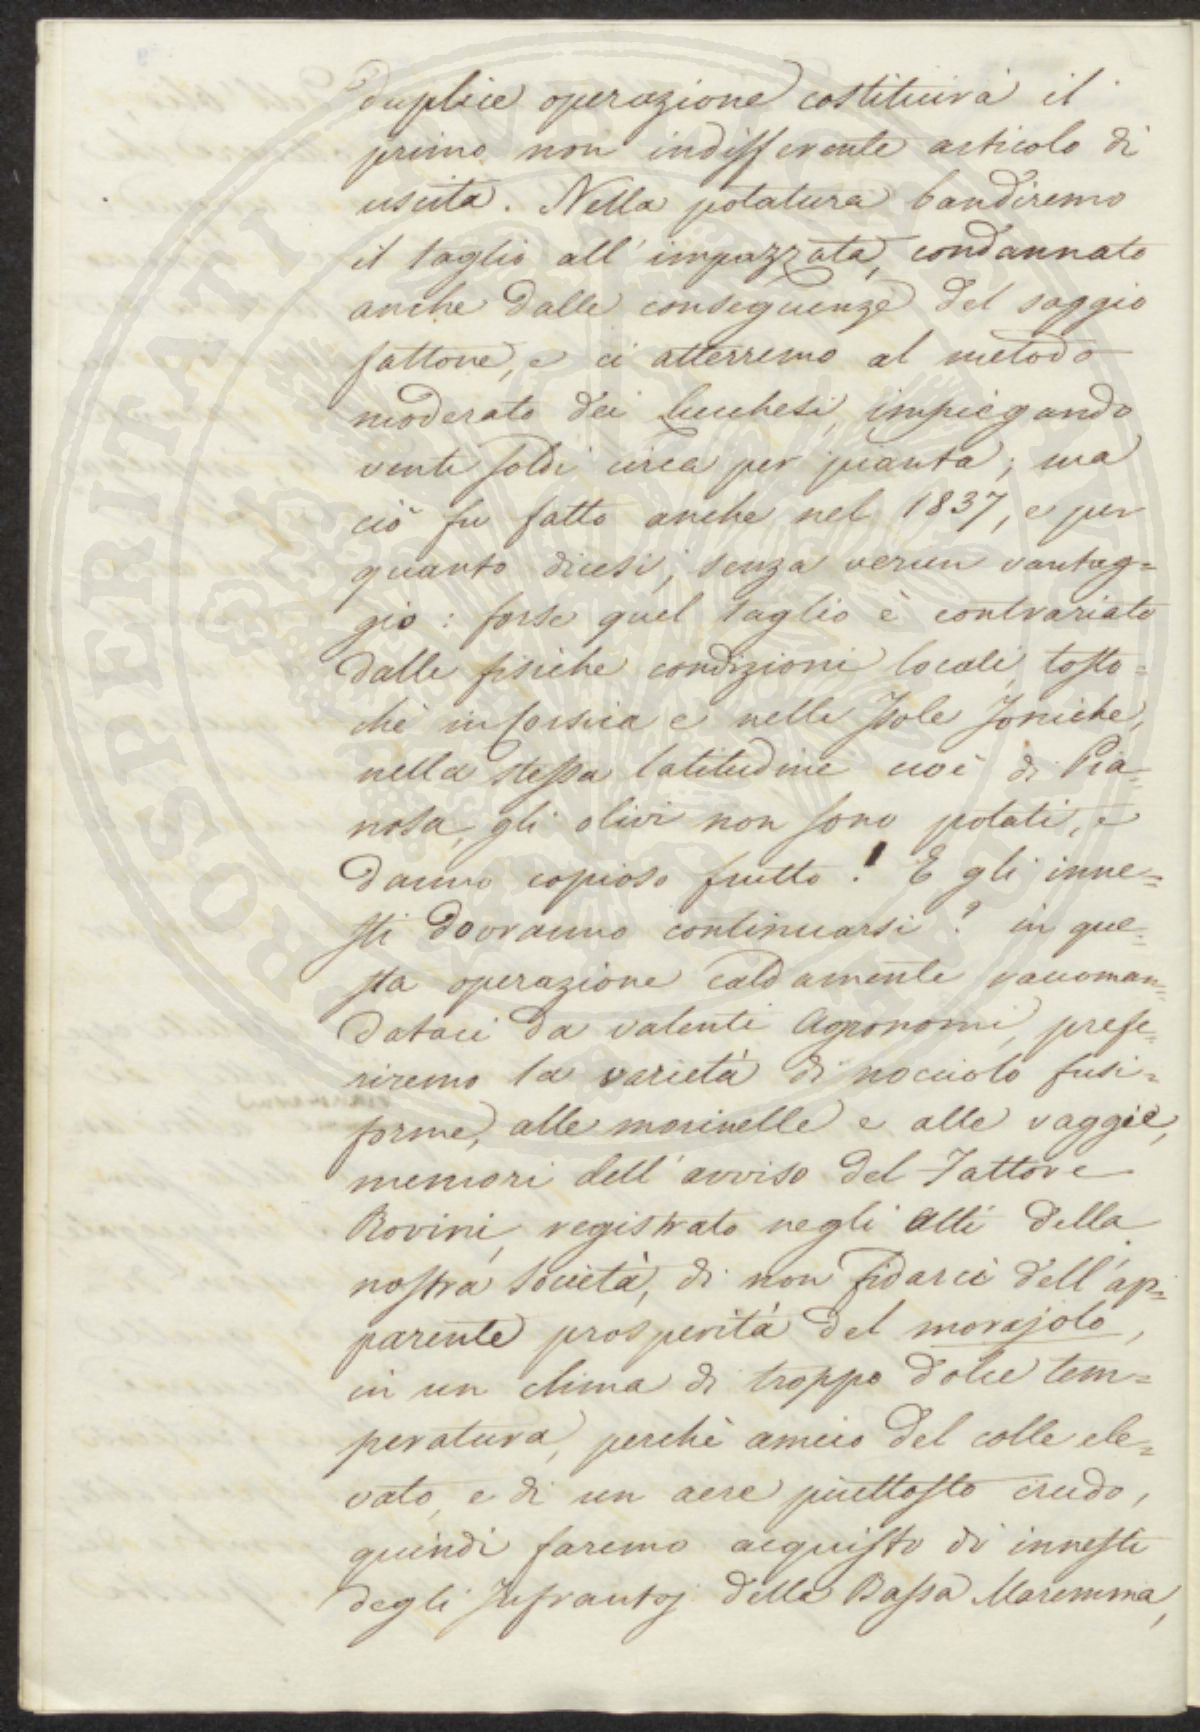 duplice operazione costituirà il
primo non indifferente articolo di
uscita. Nella potatura bandiremo
il taglio all'impazzata, condannato
anche dalle conseguenze del saggio
fattone, e ci atterremo al metodo
moderato dei Lucchesi, impiegando
venti soldi circa per pianta; ma
ciò fu fatto anche nel 1837, e per
quanto dicesi, senza verun vantag=
gio: forse quel taglio è contrariato
dalle fisiche condizioni locali, tosto=
chè in Corsica e nelle Isole Joniche,
nella stessa latitudine cioè di Pia=
nosa, gli olivi non sono potati, e
danno copioso frutto! E gli inne=
sti dovranno continuarsi? in que=
sta operazione caldamente raccoman=
dataci da valenti Agronomi, prefe=
riremo la varietà di nocciolo fusi=
forme, alle morinelle e alle raggie,
memori dell'avviso del Fattore
Rovini, registrato negli Atti della
nostra Società, di non fidarci dell'ap=
parente prosperità del morajolo,
in un clima di troppo dolce tem=
peratura, perchè amico del colle ele=
vato, e di un aere piuttosto crudo,
quindi faremo acquisto di innesti
degli Infrantoj della Bassa Maremma,
PROSPERITATI